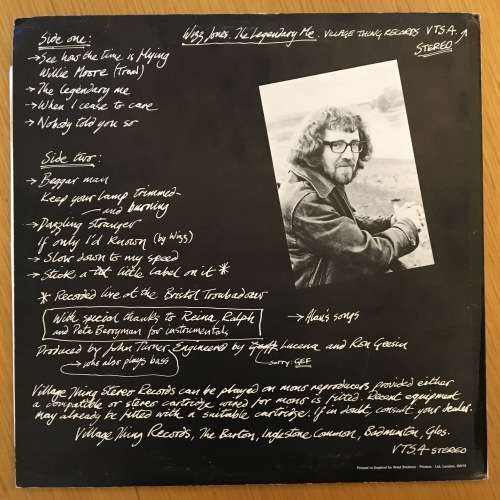 Side one:
→ See how the time is flying
Willie Moore (Trad)
→ The legendary me
→ When I cease to care
→ Nobody told you so
Wizz Jones. The Legendary Me. VILLAGE THING RECORDS VTS.4.
STEREO
Side two:
→ Beggar man
Keep your lamp trimmed
and burning
→ Dazzling stranger
If only I'd known (by Wizz)
→ Slow down to my speed
→ Stick a little label on it *
* Recorded live at the Bristol Troubadour
With special thanks to Reina, Ralph
and Pete Berryman for instrumentals
→ Alan's songs
Produced by John Turner. Engineered by Lucena and Ron Geesin
who also plays bass
sorry: GEF
Village Thing Stereo Records can be played on mono reproducers provided either
a compatible or stereo cartridge wired for mono is fitted. Recent equipment
may already be fitted with a suitable cartridge. If in doubt, consult your dealer.
Village Thing Records, The Barton, Inglestone Common, Badminton, Glos.
VTS.4 STEREO